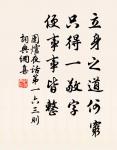 立身之道何窮
只得一敬字
便事事皆整
圍爐夜話第一六三則